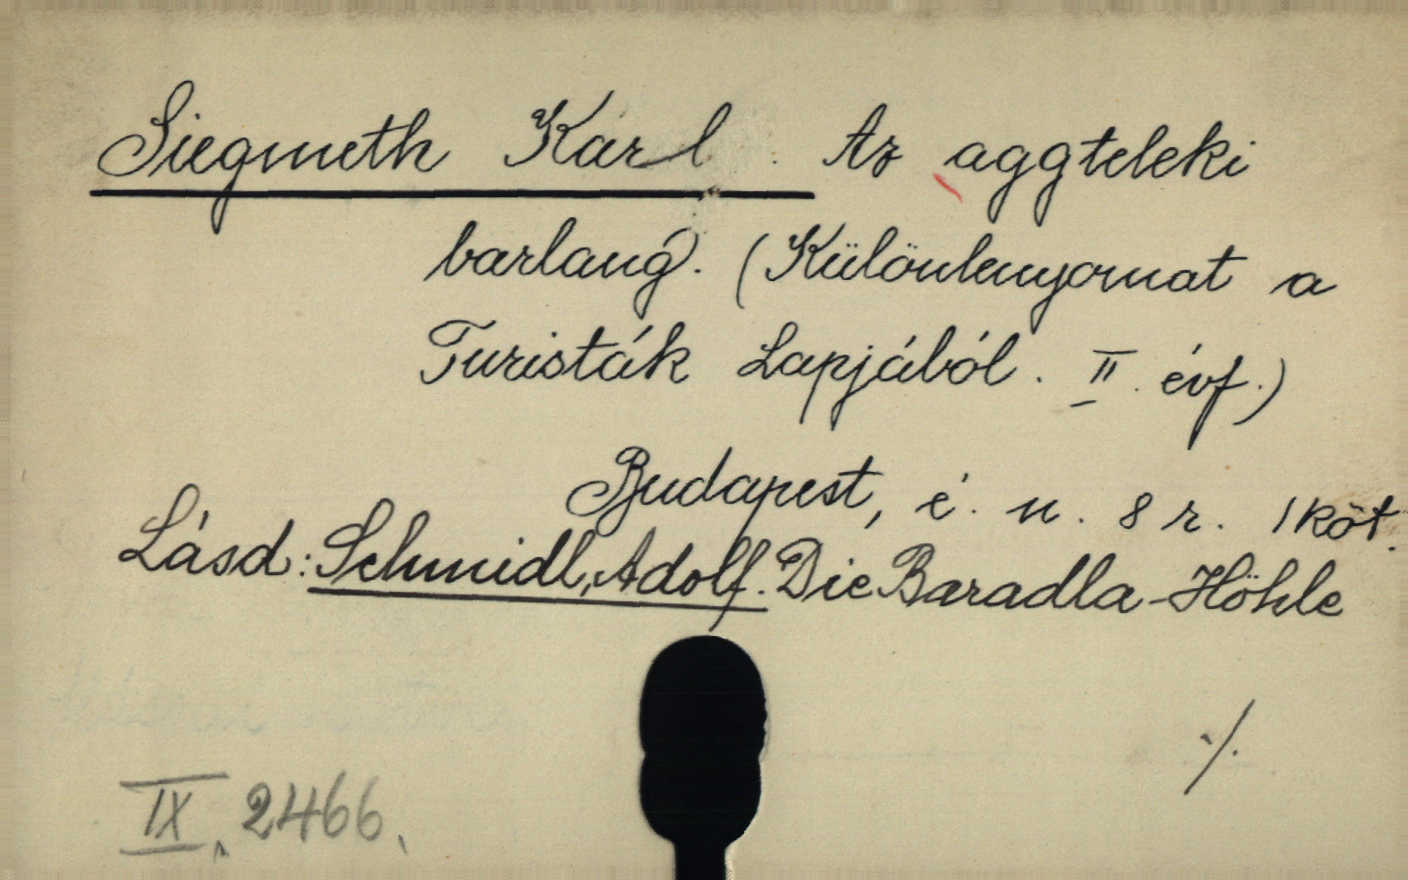 Siegmeth Karl. Az aggteleki
barlang. (Különlenyomat a
Turisták Lapjából. II. évf.)
Budapest, é. n. 8 r. 1 köt.
Lásd: Schmidl, Adolf. Die Baradla-Höhle
./.
IX. 2466.